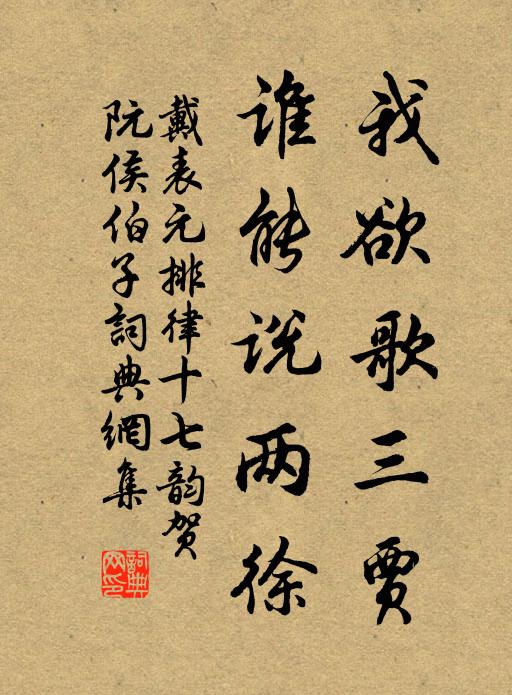 我欲歌三贾
谁能说两徐
戴表元排律十七韵贺
阮侯伯子詞典網集
詞典网印